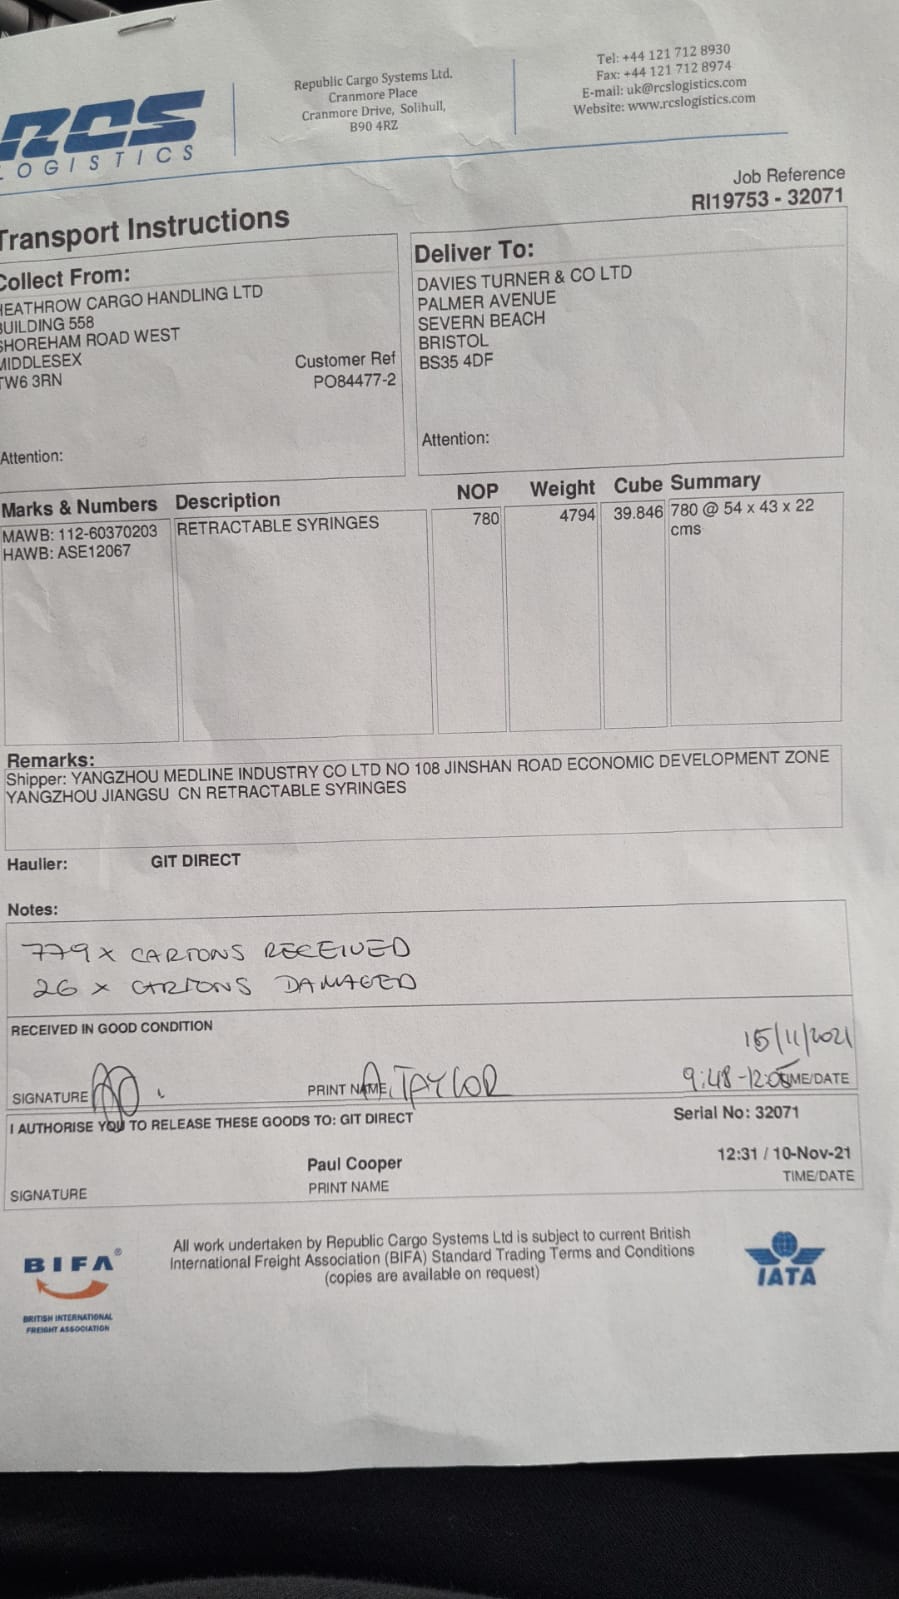 RCS
LOGISTICS
Republic Cargo Systems Ltd.
Cranmore Place
Cranmore Drive, Solihull,
B90 4RZ
Tel: +44 121 712 8930
Fax: +44 121 712 8974
E-mail: uk@rcslogistics.com
Website: www.rcslogistics.com
Job Reference
RI19753 - 32071
Transport Instructions
Collect From:
HEATHROW CARGO HANDLING LTD
BUILDING 558
SHOREHAM ROAD WEST
MIDDLESEX
TW6 3RN
Customer Ref
PO84477-2
Attention:
Deliver To:
DAVIES TURNER & CO LTD
PALMER AVENUE
SEVERN BEACH
BRISTOL
BS35 4DF
Attention:
Marks & Numbers Description NOP Weight Cube Summary
MAWB: 112-60370203 RETRACTABLE SYRINGES 780 4794 39.846 780 @ 54 x 43 x 22
HAWB: ASE12067 cms
Remarks:
Shipper: YANGZHOU MEDLINE INDUSTRY CO LTD NO 108 JINSHAN ROAD ECONOMIC DEVELOPMENT ZONE
YANGZHOU JIANGSU CN RETRACTABLE SYRINGES
Haulier: GIT DIRECT
Notes:
779 x CARTONS RECEIVED
26 x CARTONS DAMAGED
RECEIVED IN GOOD CONDITION
15/11/2021
SIGNATURE PRINT NAME A. TAYLOR 9:48-12:05 TIME/DATE
I AUTHORISE YOU TO RELEASE THESE GOODS TO: GIT DIRECT Serial No: 32071
Paul Cooper 12:31 / 10-Nov-21
SIGNATURE PRINT NAME TIME/DATE
BIFA®
BRITISH INTERNATIONAL
FREIGHT ASSOCIATION
All work undertaken by Republic Cargo Systems Ltd is subject to current British
International Freight Association (BIFA) Standard Trading Terms and Conditions
(copies are available on request)
IATA